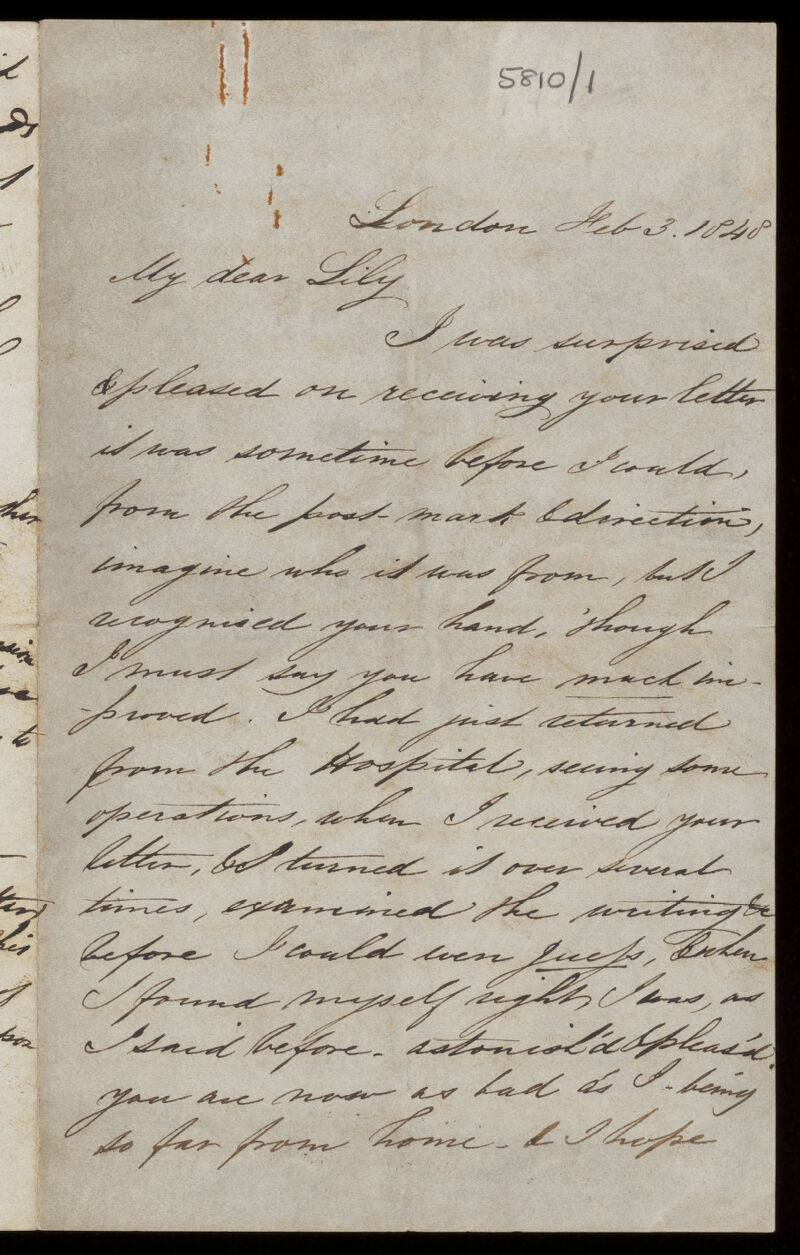 5810/1
London Feb 3. 1848
My dear Lily
I was surprised
& pleased on receiving your letter
it was sometime before I could,
from the post-mark & direction,
imagine who it was from, but I
recognised your hand, 'though
I must say you have much im-
-proved. I had just returned
from the Hospital, seeing some
operations, when I received your
letter, & I turned it over several
times, examined the writing &c
before I could even guess, & when
I found myself right, I was, as
I said before - astonish'd & pleas'd.
you are now as bad as I - being
so far from home - & I hope